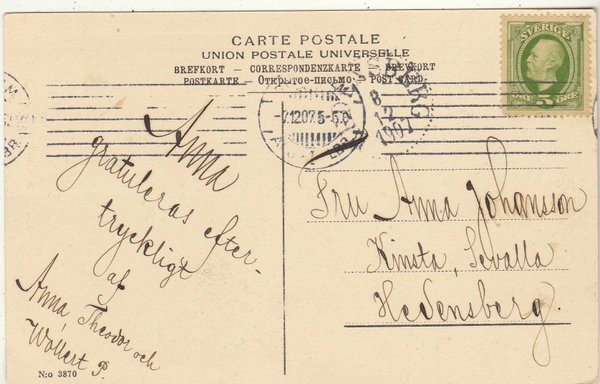 CARTE POSTALE
UNION POSTALE UNIVERSELLE
BREFKORT – CORRESPONDENZKARTE – BREVKORT
POSTKARTE – Открытое-письмо – POST CARD.
SVERIGE
5
7.12.07.5-5.
8
12
1907
Anna
gratuleras efter-
tryckligt
af
Anna Theodor och
Wollert P.
Fru Anna Johansson
Kinsta, Sevalla
Hedensberg.
N:o 3870